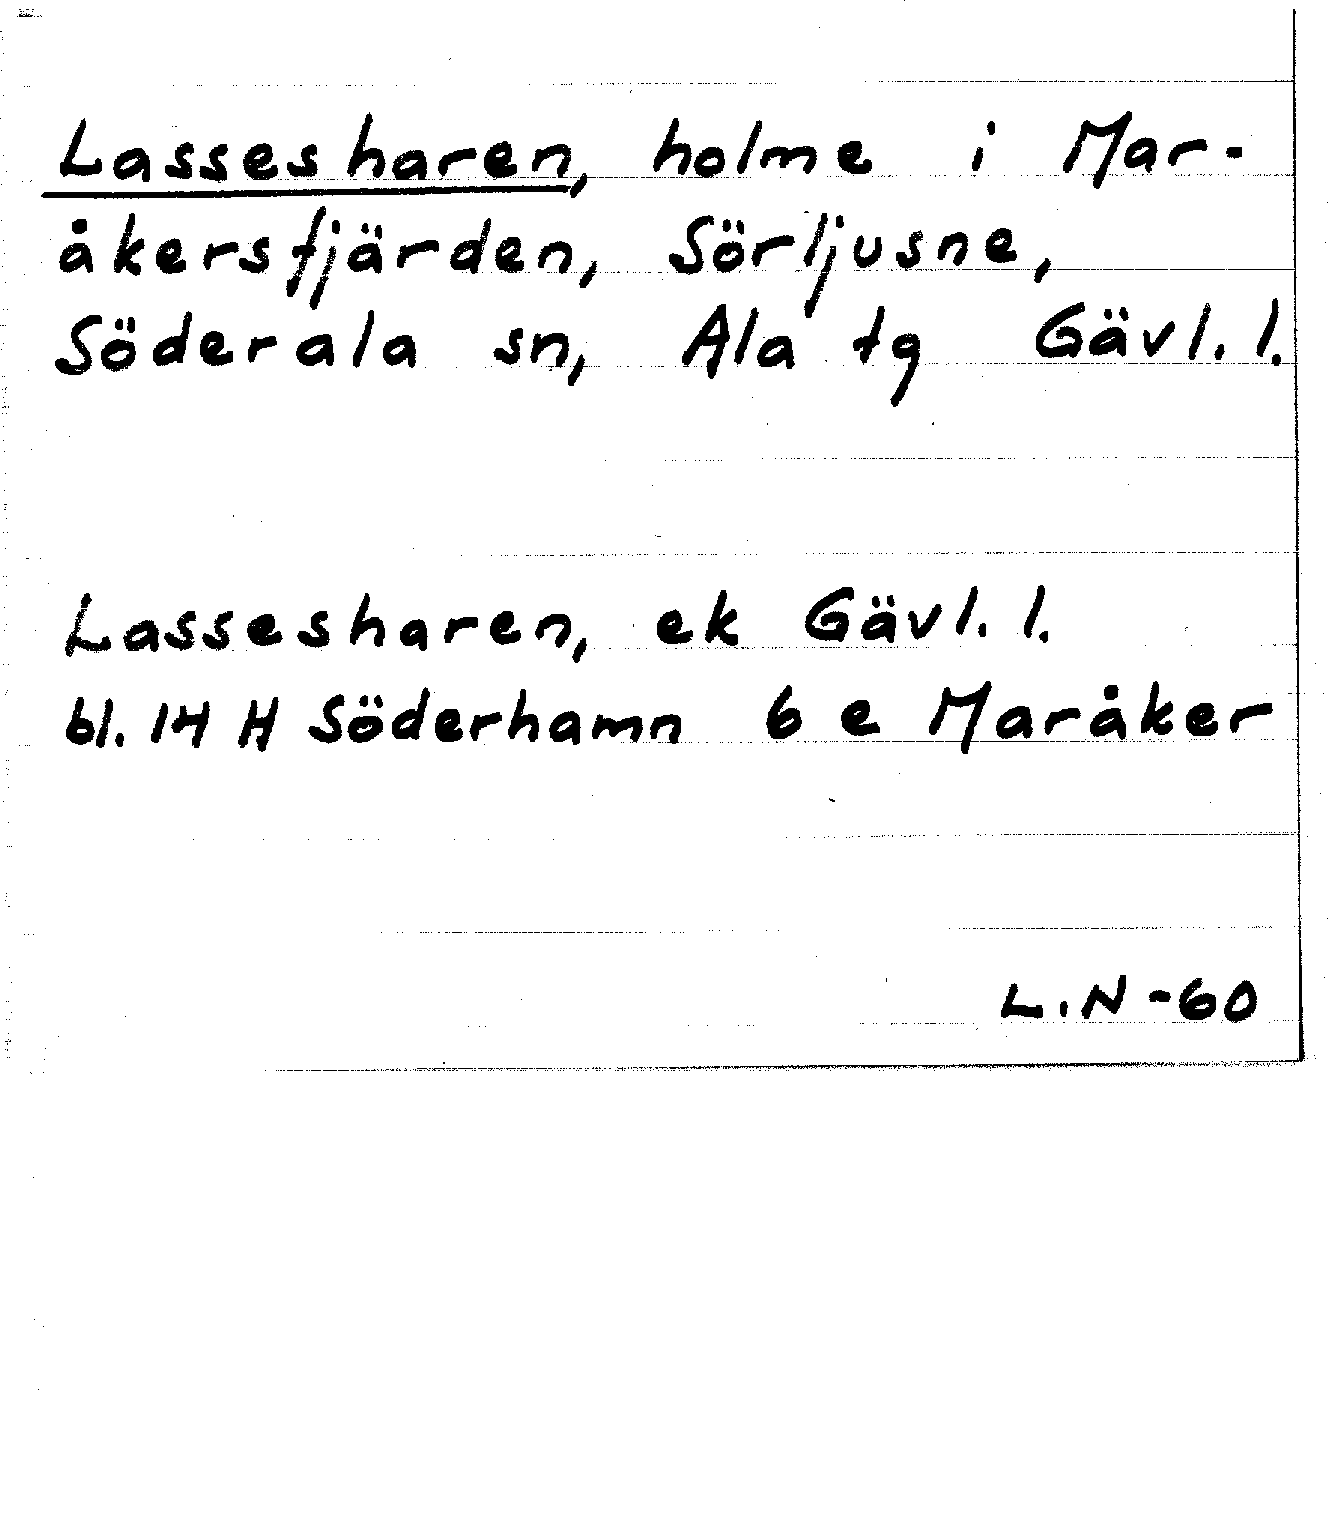 Lassesharen, holme i Mar-
åkersfjärden, Sörljusne,
Söderala sn, Ala tg Gävl. l.
Lassesharen, ek Gävl. l.
bl. 14 H Söderhamn 6 e Maråker
L.N -60